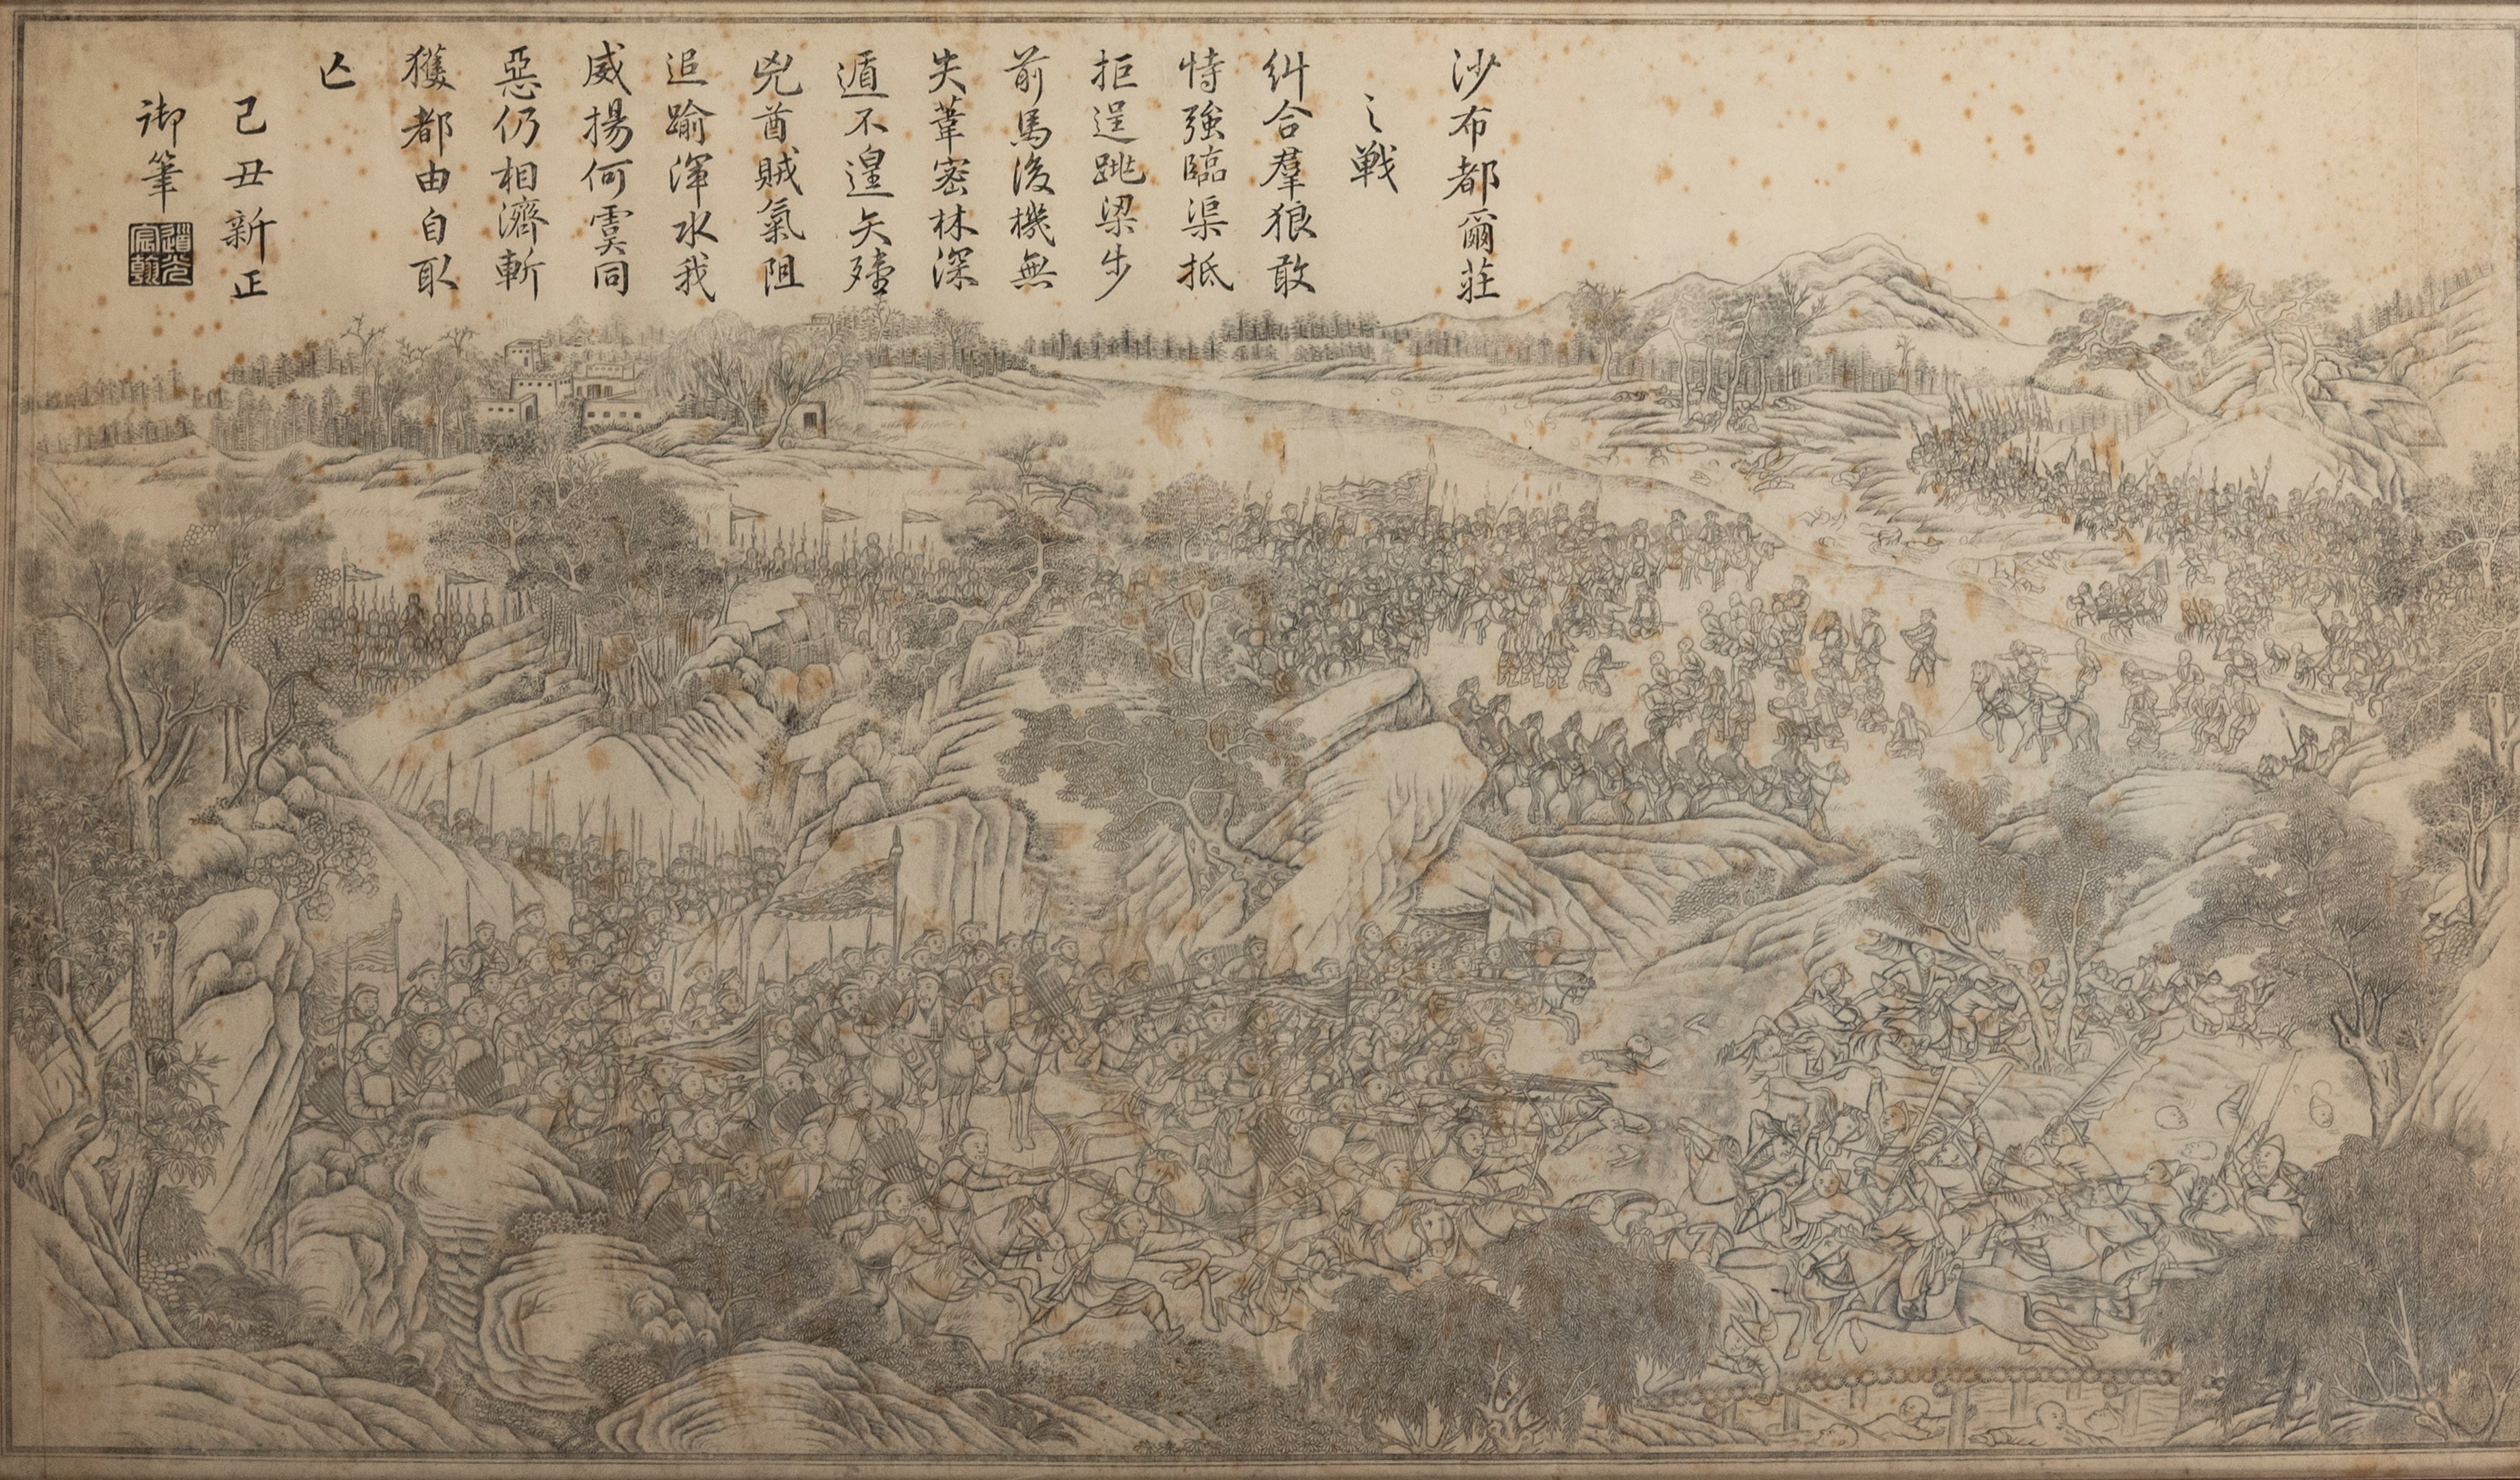 沙布都爾莊
之戰
糾合羣狼敢
恃強臨渠抵
拒逞跳梁步
前馬後機無
失葦密林深
遁不遑矢殪
兇酋賊氣阻
追踰渾水我
威揚何虞同
惡仍相濟斬
獲都由自取
亾
己丑新正
御筆
道光
宸翰